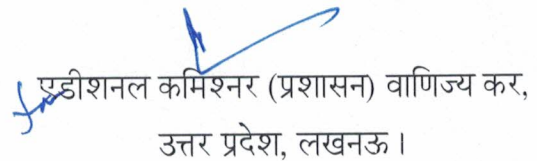 एडीशनल कमिश्नर (प्रशासन) वाणिज्य कर,
उत्तर प्रदेश, लखनऊ ।